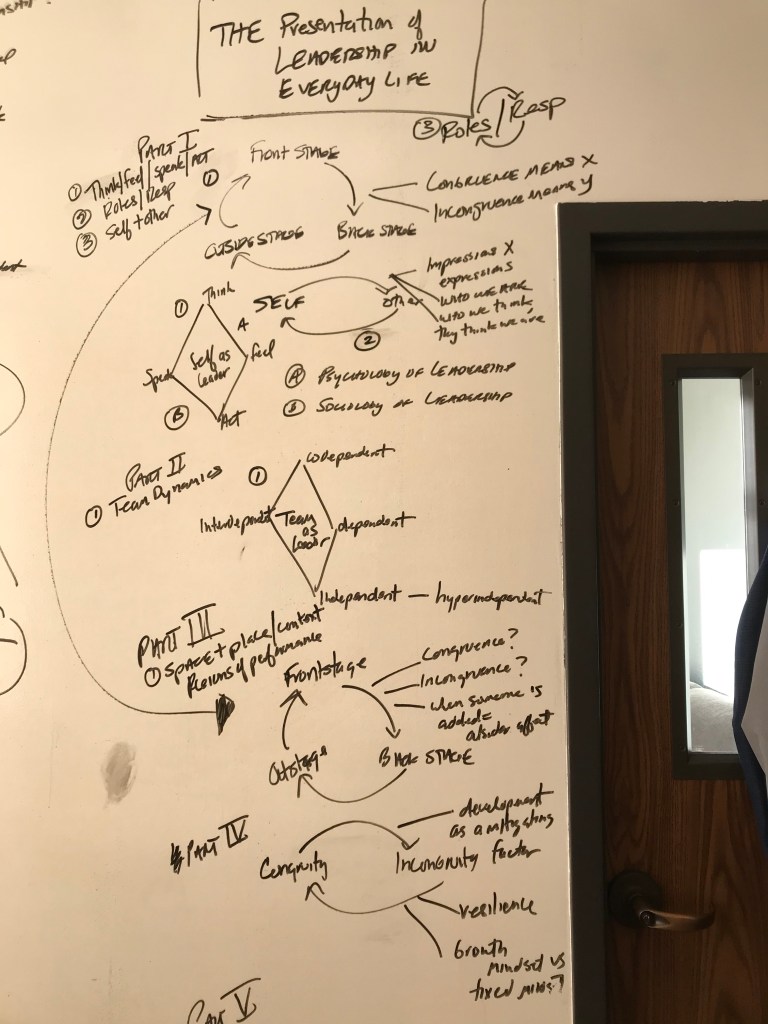 THE Presentation of
LEADERSHIP IN
EVERYDAY LIFE
③ Roles / Resp
PART I
① Think/feel/speak/ACT
② Roles/Resp
③ Self + other
①
Front STAGE
BACK STAGE
OUTSIDE STAGE
CONGRUENCE MEANS X
Incongruence means y
SELF
other
②
Impressions X
expressions
WHO WE ARE
WHO WE think
they think we are
①
Think
A
Feel
Act
Speak
B
Self as
leader
Ⓐ PSYCHOLOGY OF LEADERSHIP
SOCIOLOGY OF LEADERSHIP
PART II
① Team Dynamics
①
Codependent
Interdependent
dependent
Team
as
leader
Independent — hyperindependent
PART III
① SPACE + place/context
Regions of performance
Frontstage
BACK STAGE
Outstage
Congruence?
Incongruence?
when someone is
added =
PART IV
Congruity
Incongruity
development
as a mitigating
factor
resilience
Growth
mindset vs
fixed
PART V